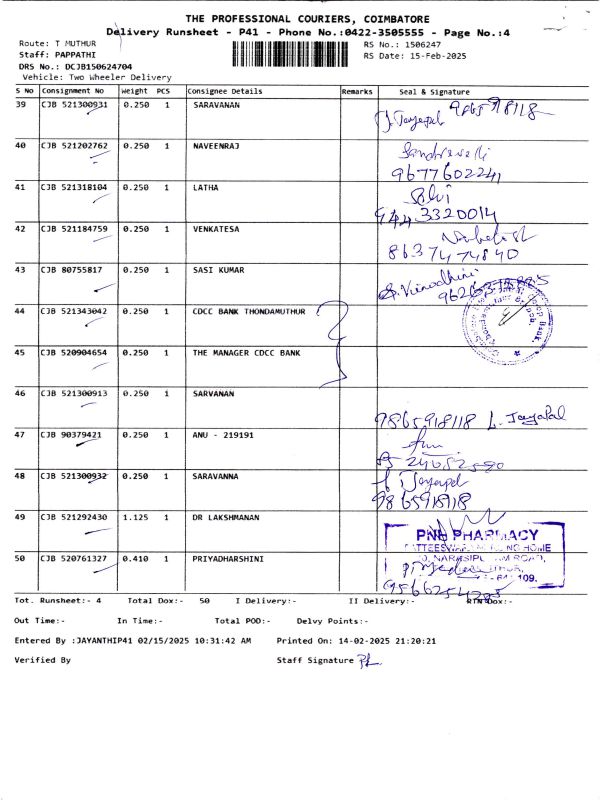 THE PROFESSIONAL COURIERS, COIMBATORE
Delivery Runsheet - P41 - Phone No.:0422-3505555 - Page No.:4
Route: T MUTHUR
RS No.: 1506247
Staff: PAPPATHI
RS Date: 15-Feb-2025
DRS No.: DCJB150624704
Vehicle: Two Wheeler Delivery
S No Consignment No Weight PCS Consignee Details Remarks Seal & Signature
39 CJB 521300931 0.250 1 SARAVANAN
J. Jayapal 9865918118
40 CJB 521202762 0.250 1 NAVEENRAJ
9677602241
41 CJB 521318104 0.250 1 LATHA
Selvi
944 3320014
42 CJB 521184759 0.250 1 VENKATESA
863 74 74840
43 CJB 80755817 0.250 1 SASI KUMAR
S. Vinodhini
44 CJB 521343042 0.250 1 CDCC BANK THONDAMUTHUR
45 CJB 520904654 0.250 1 THE MANAGER CDCC BANK
46 CJB 521300913 0.250 1 SARVANAN
9865918118 L. Jayapal
47 CJB 90379421 0.250 1 ANU - 219191
48 CJB 521300932 0.250 1 SARAVANNA
Jayapal
9865918118
49 CJB 521292430 1.125 1 DR LAKSHMANAN
PNH PHARMACY
NG HOME
50 CJB 520761327 0.410 1 PRIYADHARSHINI
ROAD,
109.
Tot. Runsheet:- 4 Total Dox:- 50 I Delivery:- II Delivery:- RTN Dox:-
Out Time:- In Time:- Total POD:- Delvy Points:-
Entered By :JAYANTHIP41 02/15/2025 10:31:42 AM Printed On: 14-02-2025 21:20:21
Verified By Staff Signature